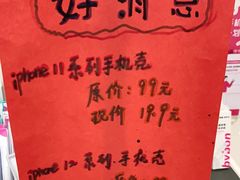 好消息
iphone 11 系列手机壳
原价: 99元
现价 19.9元
iphone 12 系列.手机壳